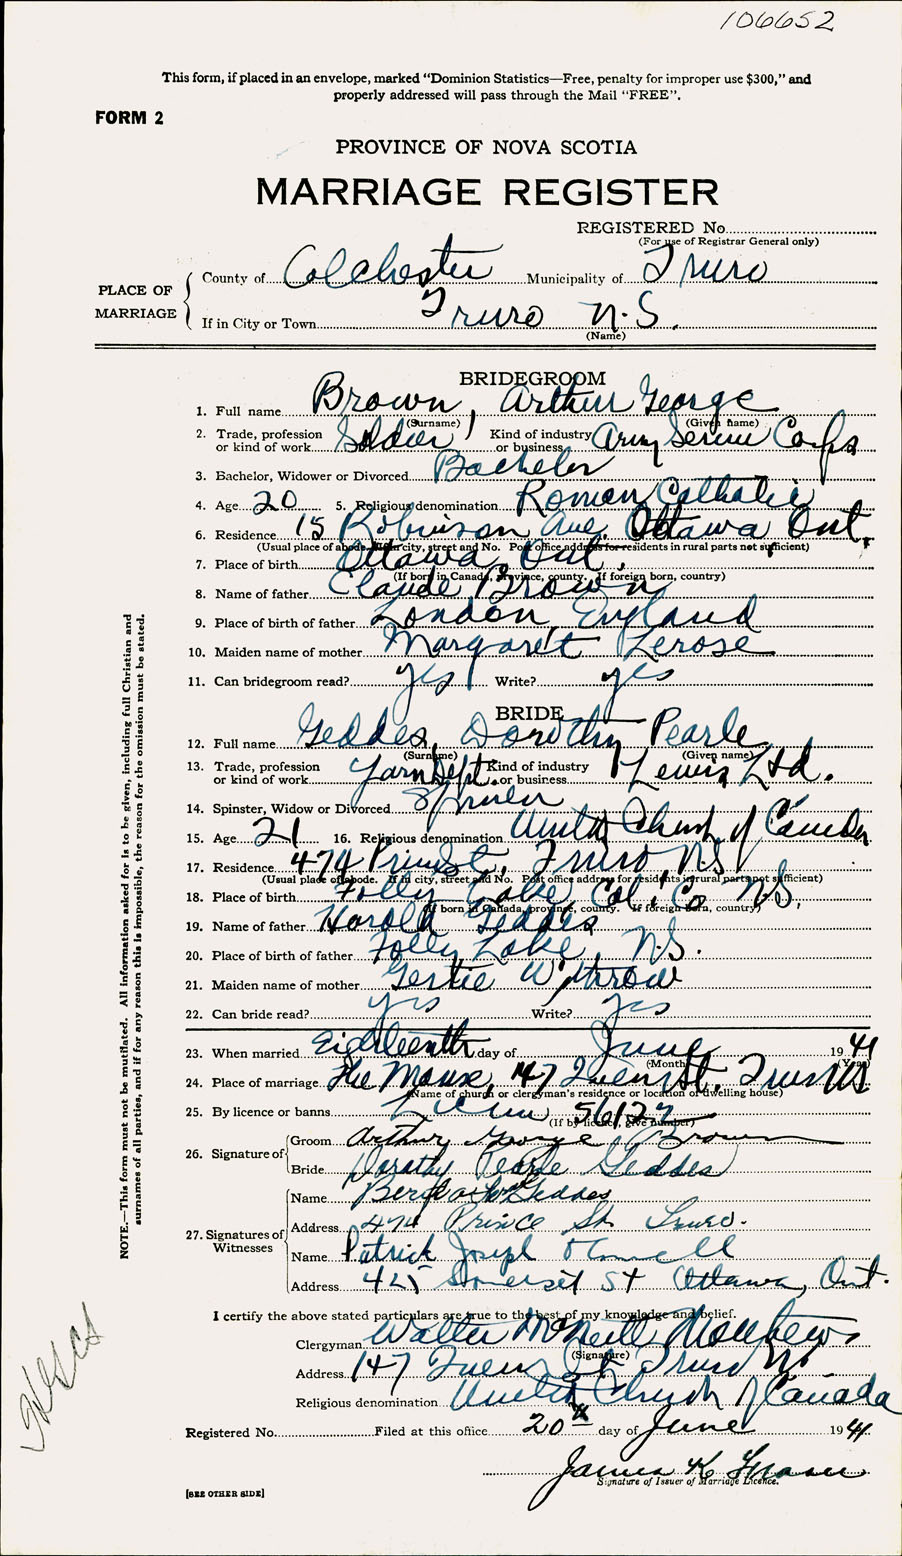 106652
This form, if placed in an envelope, marked “Dominion Statistics—Free, penalty for improper use $300,” and
properly addressed will pass through the Mail “FREE”.
FORM 2
PROVINCE OF NOVA SCOTIA
MARRIAGE REGISTER
REGISTERED No.
(For use of Registrar General only)
PLACE OF MARRIAGE
County of Colchester Municipality of Truro
If in City or Town Truro N.S.
(Name)
BRIDEGROOM
1. Full name Brown, Arthur George
(Surname) (Given name)
2. Trade, profession or kind of work Soldier Kind of industry or business Army Service Corps
3. Bachelor, Widower or Divorced Bachelor
4. Age 20 5. Religious denomination Roman Catholic
6. Residence 15 Robinson Ave. Ottawa Ont.
(Usual place of abode. If in city, street and No. Post office address for residents in rural parts not sufficient)
7. Place of birth Ottawa, Ont.
(If born in Canada, province, county. If foreign born, country)
8. Name of father Claude Brown
9. Place of birth of father London, England
10. Maiden name of mother Margaret Lerose
11. Can bridegroom read? yes Write? yes
BRIDE
12. Full name Geddes, Dorothy Pearle
(Surname) (Given name)
13. Trade, profession or kind of work Yarn Dept. Kind of industry or business Lewis Ltd.
14. Spinster, Widow or Divorced Spinster
15. Age 21 16. Religious denomination United Church of Canada
17. Residence 474 Prince St. Truro N.S.
(Usual place of abode. If in city, street and No. Post office address for residents in rural parts not sufficient)
18. Place of birth Folly Lake, Col. Co. N.S.
(If born in Canada, province, county. If foreign born, country)
19. Name of father Harold Geddes
20. Place of birth of father Folly Lake, N.S.
21. Maiden name of mother Gertie Withrow
22. Can bride read? yes Write? yes
23. When married Eighteenth day of June 1941
(Month) (Year)
24. Place of marriage The Manse, 147 Queen St. Truro NS
(Name of church or clergyman's residence or location of dwelling house)
25. By licence or banns Licence 56127
(If by licence, give number)
26. Signature of
Groom Arthur George Brown
Bride Dorothy Pearle Geddes
27. Signatures of Witnesses
Name Geddes
Address 474 Prince St. Truro.
Name Patrick Joseph
Address 425 Somerset St Ottawa, Ont.
I certify the above stated particulars are true to the best of my knowledge and belief.
Clergyman Walter McNeill Matthews
(Signature)
Address 147 Queen St Truro NS
Religious denomination United Church of Canada
Registered No. Filed at this office 20th day of June 1941
James K Fraser
Signature of Issuer of Marriage Licence.
[SEE OTHER SIDE]
NOTE.—This form must not be mutilated. All information asked for is to be given, including full Christian and
surnames of all parties, and if for any reason this is impossible, the reason for the omission must be stated.